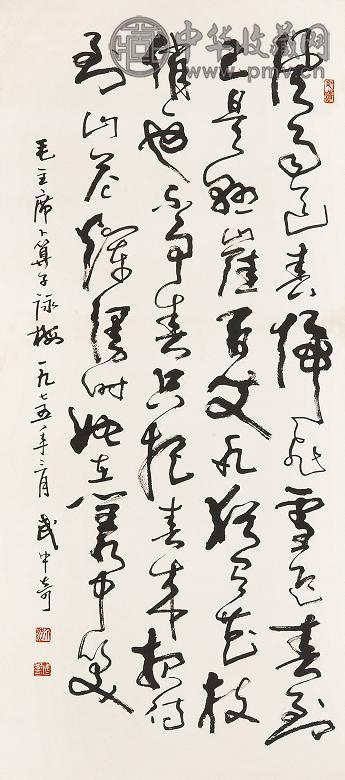 中华收藏网
www.pmv.cn
風雨送春归飛雪迎春到
已是懸崖百丈冰猶有花枝
俏也不争春只把春来報待
到山花爛漫時她在叢中笑
毛主席卜算子詠梅 一九七五年 月 武中奇